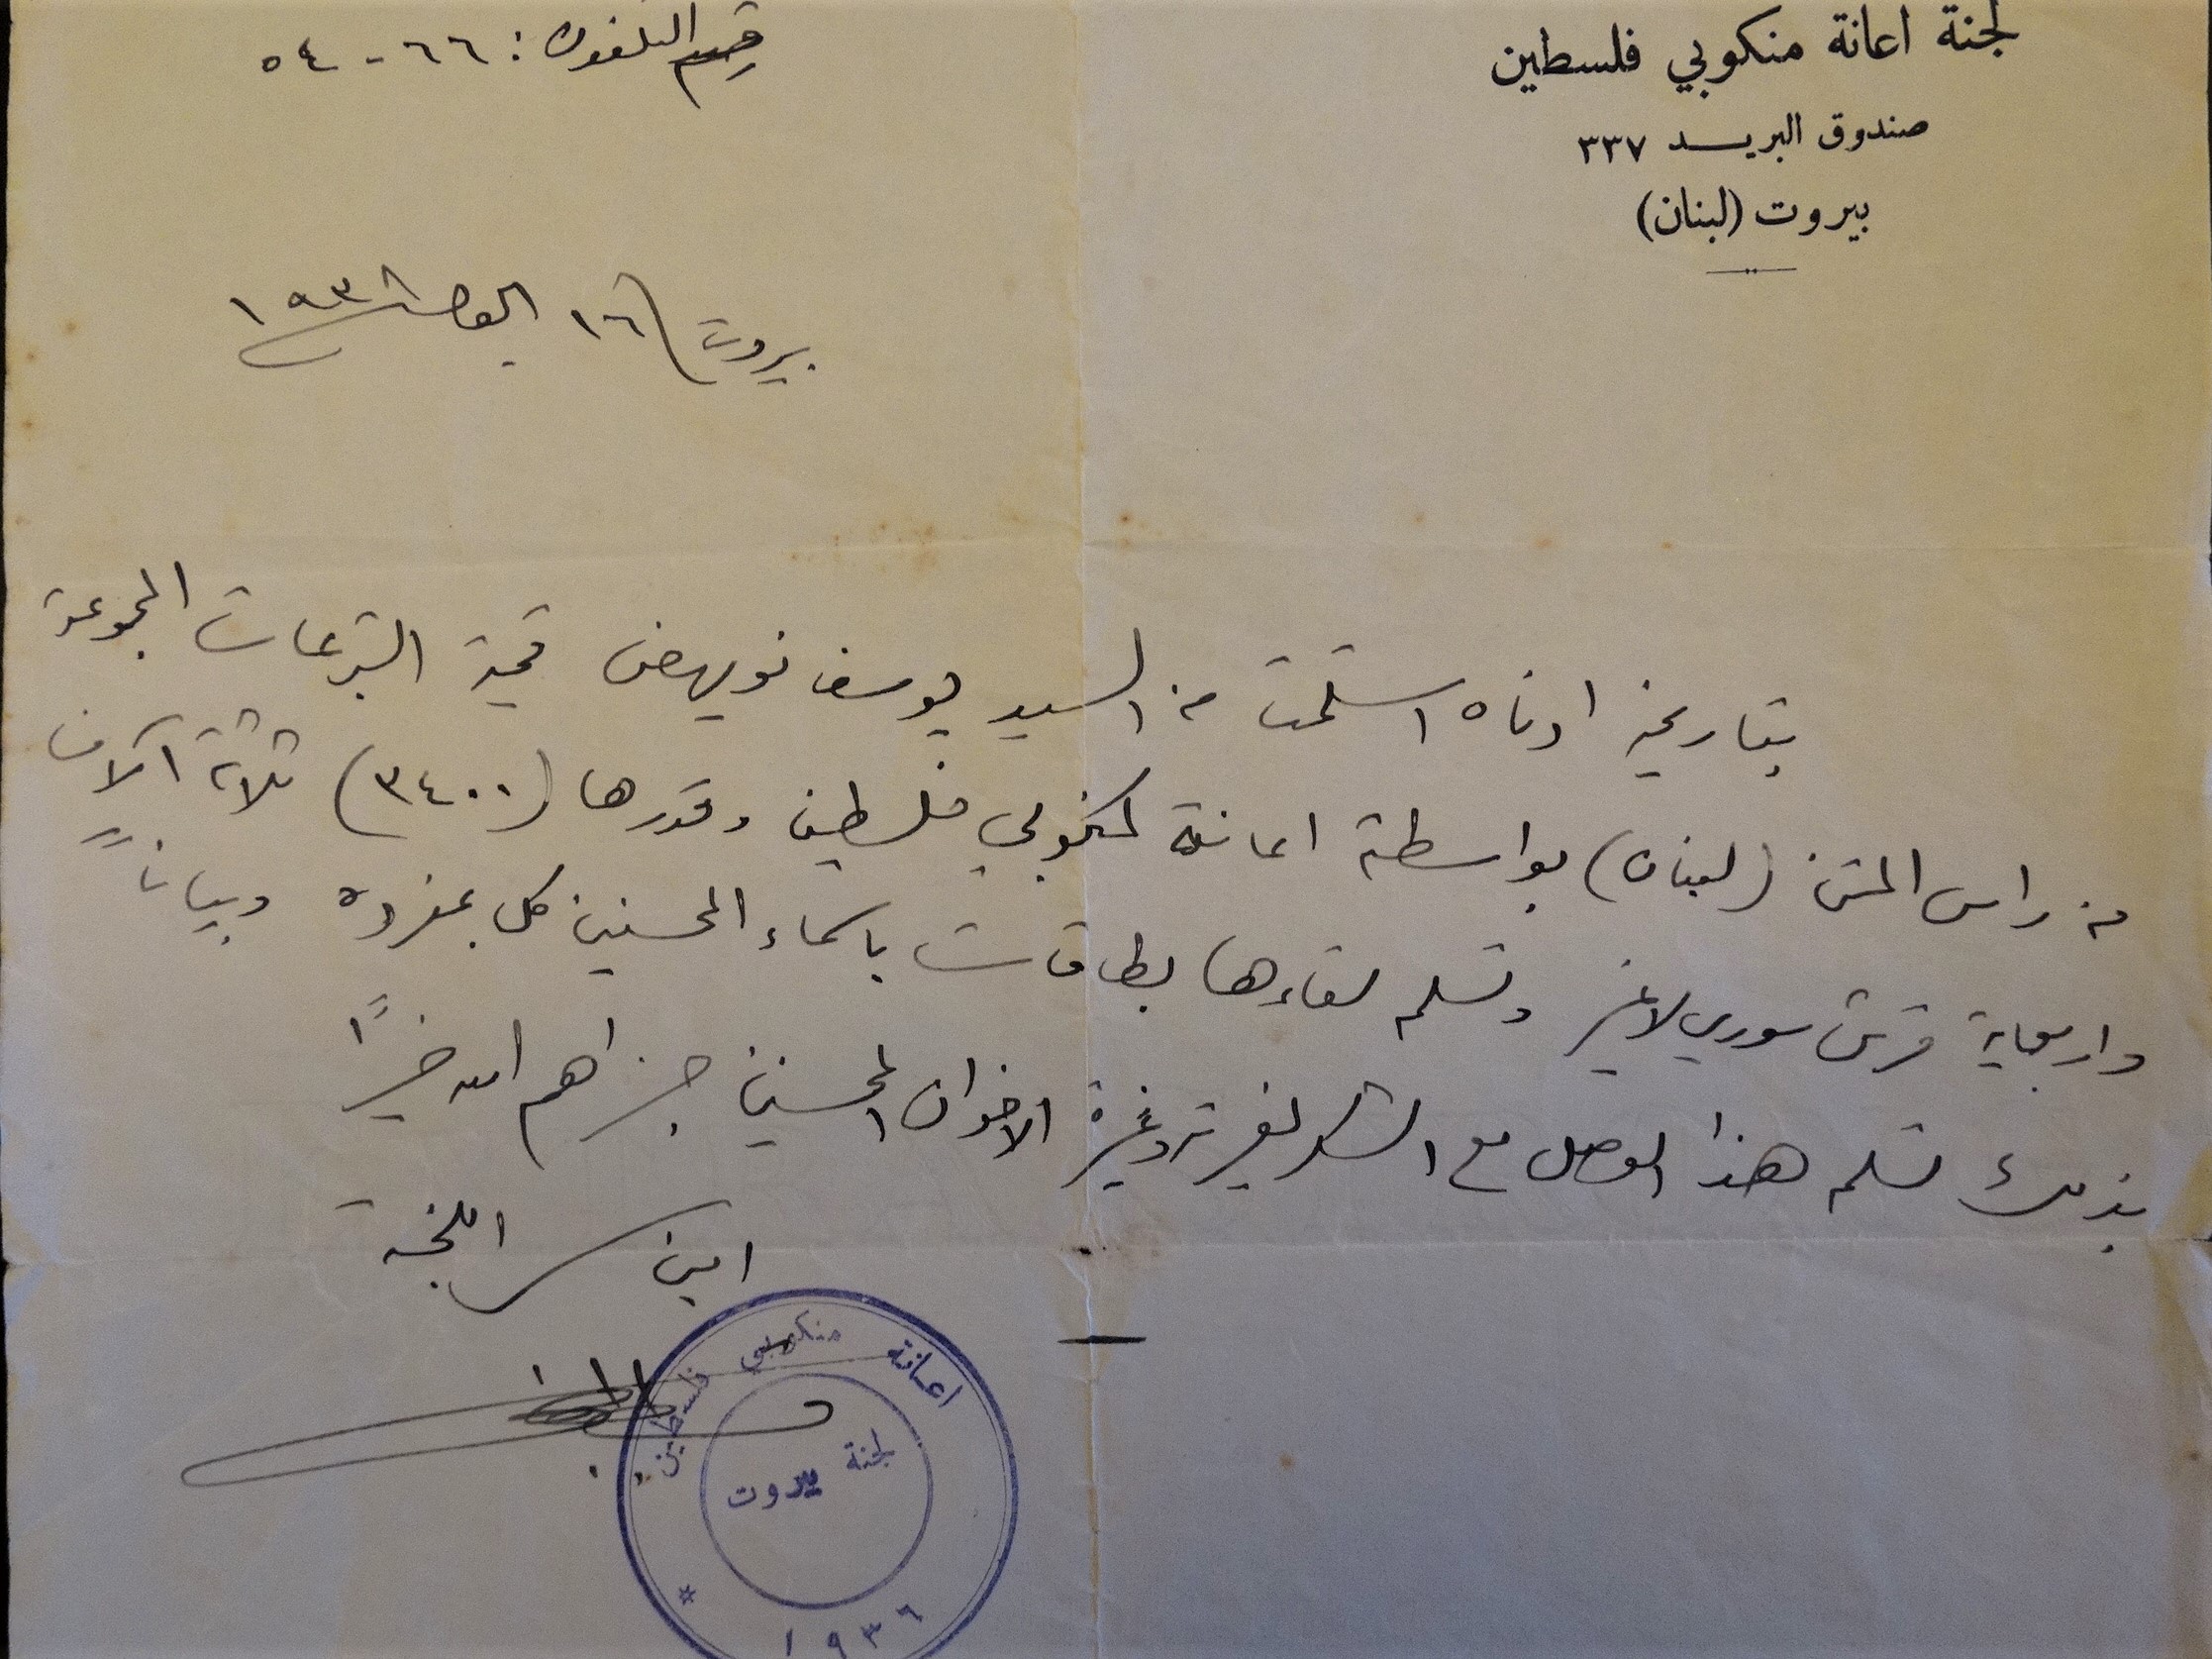 لجنة اعانة منكوبي فلسطين
صندوق البريد ٣٣٧
بيروت (لبنان)
التلفون: ٦٦-٥٤
بيروت ١٦ ١٩٣
بتاريخه ادناه استلمت من السيد يوسف نويهض قيمة التبرعات المجموعة
من راس المتن (لبنان) بواسطة اعانة لمنكوبي فلسطين وقدرها (٣٤٠٠) ثلاثة آلاف
واربعماية قرش سوري لا غير وتسلم لقاءها بطاقات باسماء المحسنين كل بمفرده وبياناً
بذلك تسلم هذا الوصل مع الشكر لغيرته وغيرة الاخوان المحسنين جزاهم الله خيراً
امين سر اللجنة
اعانة منكوبي فلسطين
لجنة بيروت
١٩٣٦